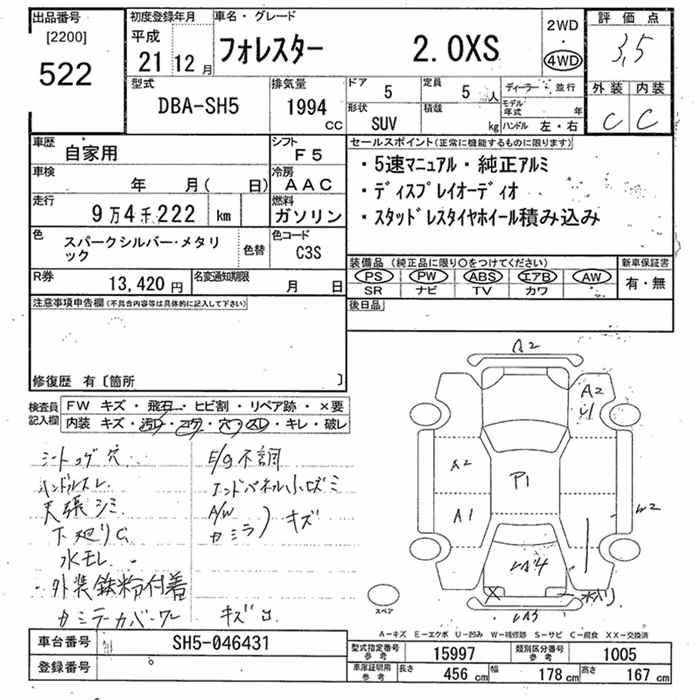 出品番号
[2200]
522
初度登録年月
平成
21 12 月
車名・グレード
フォレスター 2.0XS
2WD
・
4WD
評価点
3.5
外装 内装
C C
型式
DBA-SH5
排気量
1994 cc
ドア
5
定員
5 人
形状
SUV
積載
kg
ディーラー・並行
モデル年式 年
ハンドル 左・右
車歴
自家用
シフト
F5
車検
年 月( 日)
冷房
AAC
走行
9万4千222 km
燃料
ガソリン
色
スパークシルバー・メタリック
色替
色コード
C3S
R券
13,420 円
名変通知期限
月 日
セールスポイント(正常に機能するものに限ります)
・5速マニュアル・純正アルミ
・ディスプレイオーディオ
・スタッドレスタイヤホイール積み込み
装備品 (純正品に限り〇をつけてください)
PS PW ABS エアB AW
SR ナビ TV カワ
新車保証書
有・無
注意事項申告欄(不具合内容等は具体的に記入して下さい)
後日品
修復歴 有〔箇所 〕
検査員記入欄
FW キズ・飛石・ヒビ割・リペア跡・×要
内装 キズ・汚レ・コゲ・穴・スレ・キレ・破レ
シートコゲ穴
ハンドルスレ
天張シミ
下廻りC
水モレ
・外装鉄粉付着
E/g不調
A/W
キズ
A2
A2
U1
A2
P1
A1
W2
スペア
A-キズ E-エクボ U-凹み W-補修跡 S-サビ C-腐食 XX-交換済
車台番号
SH5-046431
登録番号
型式指定番号 参考
15997
類別区分番号 参考
1005
車庫証明用 参考
長さ 456 cm 幅 178 cm 高さ 167 cm